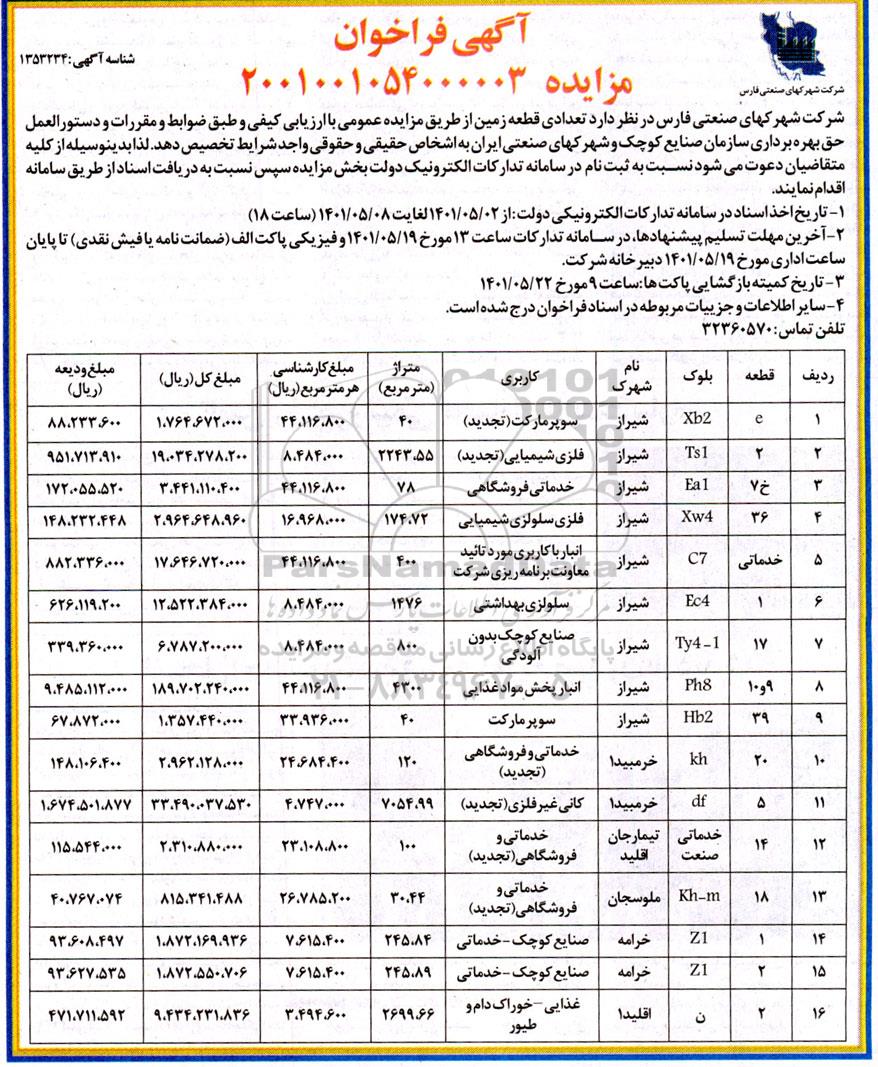 آگهی فراخوان
مزایده ۲۰۰۱۰۰۱۰۵۴۰۰۰۰۰۳
شناسه آگهی: ۱۳۵۳۲۳۴
شرکت شهرکهای صنعتی فارس
شرکت شهرکهای صنعتی فارس در نظر دارد تعدادی قطعه زمین از طریق مزایده عمومی با ارزیابی کیفی و طبق ضوابط و مقررات و دستورالعمل
حق بهره برداری سازمان صنایع کوچک و شهرکهای صنعتی ایران به اشخاص حقیقی و حقوقی واجد شرایط تخصیص دهد. لذا بدینوسیله از کلیه
متقاضیان دعوت می شود نسبت به ثبت نام در سامانه تدارکات الکترونیک دولت بخش مزایده سپس نسبت به دریافت اسناد از طریق سامانه
اقدام نمایند.
۱- تاریخ اخذ اسناد در سامانه تدارکات الکترونیکی دولت: از ۱۴۰۱/۰۵/۰۲ لغایت ۱۴۰۱/۰۵/۰۸ (ساعت ۱۸)
۲- آخرین مهلت تسلیم پیشنهادها، در سامانه تدارکات ساعت ۱۳ مورخ ۱۴۰۱/۰۵/۱۹ و فیزیکی پاکت الف (ضمانت نامه یا فیش نقدی) تا پایان
ساعت اداری مورخ ۱۴۰۱/۰۵/۱۹ دبیرخانه شرکت.
۳- تاریخ کمیته بازگشایی پاکت ها: ساعت ۹ مورخ ۱۴۰۱/۰۵/۲۲
۴- سایر اطلاعات و جزییات مربوطه در اسناد فراخوان درج شده است.
تلفن تماس: ۳۲۳۶۰۵۷۰
ردیف قطعه بلوک نام شهرک کاربری متراژ (متر مربع) مبلغ کارشناسی هر متر مربع (ریال) مبلغ کل (ریال) مبلغ ودیعه (ریال)
۱ e Xb2 شیراز سوپر مارکت (تجدید) ۴۰ ۴۴.۱۱۶.۸۰۰ ۱.۷۶۴.۶۷۲.۰۰۰ ۸۸.۲۳۳.۶۰۰
۲ ۲ Ts1 شیراز فلزی شیمیایی (تجدید) ۲۲۴۳.۵۵ ۸.۴۸۴.۰۰۰ ۱۹.۰۳۴.۲۷۸.۲۰۰ ۹۵۱.۷۱۳.۹۱۰
۳ خ۷ Ea1 شیراز خدماتی فروشگاهی ۷۸ ۴۴.۱۱۶.۸۰۰ ۳.۴۴۱.۱۱۰.۴۰۰ ۱۷۲.۰۵۵.۵۲۰
۴ ۳۶ Xw4 شیراز فلزی سلولزی شیمیایی ۱۷۴.۷۲ ۱۶.۹۶۸.۰۰۰ ۲.۹۶۴.۶۴۸.۹۶۰ ۱۴۸.۲۳۲.۴۴۸
۵ خدماتی C7 شیراز انبار با کاربری مورد تائید معاونت برنامه ریزی شرکت ۴۰۰ ۴۴.۱۱۶.۸۰۰ ۱۷.۶۴۶.۷۲۰.۰۰۰ ۸۸۲.۳۳۶.۰۰۰
۶ ۱ Ec4 شیراز سلولزی بهداشتی ۱۴۷۶ ۸.۴۸۴.۰۰۰ ۱۲.۵۲۲.۳۸۴.۰۰۰ ۶۲۶.۱۱۹.۲۰۰
۷ ۱۷ Ty4-1 شیراز صنایع کوچک بدون آلودگی ۸۰۰ ۸.۴۸۴.۰۰۰ ۶.۷۸۷.۲۰۰.۰۰۰ ۳۳۹.۳۶۰.۰۰۰
۸ ۹و۱۰ Ph8 شیراز انبار پخش مواد غذایی ۴۳۰۰ ۴۴.۱۱۶.۸۰۰ ۱۸۹.۷۰۲.۲۴۰.۰۰۰ ۹.۴۸۵.۱۱۲.۰۰۰
۹ ۳۹ Hb2 شیراز سوپر مارکت ۴۰ ۳۳.۹۳۶.۰۰۰ ۱.۳۵۷.۴۴۰.۰۰۰ ۶۷.۸۷۲.۰۰۰
۱۰ ۲۰ kh خرمبید۱ خدماتی و فروشگاهی (تجدید) ۱۲۰ ۲۴.۶۸۴.۴۰۰ ۲.۹۶۲.۱۲۸.۰۰۰ ۱۴۸.۱۰۶.۴۰۰
۱۱ ۵ df خرمبید۱ کانی غیر فلزی (تجدید) ۷۰۵۴.۹۹ ۴.۷۴۷.۰۰۰ ۳۳.۴۹۰.۰۳۷.۵۳۰ ۱.۶۷۴.۵۰۱.۸۷۷
۱۲ ۱۴ خدماتی صنعت تیمارجان اقلید خدماتی و فروشگاهی (تجدید) ۱۰۰ ۲۳.۱۰۸.۸۰۰ ۲.۳۱۰.۸۸۰.۰۰۰ ۱۱۵.۵۴۴.۰۰۰
۱۳ ۱۸ Kh-m ملوسجان خدماتی و فروشگاهی (تجدید) ۳۰.۴۴ ۲۶.۷۸۵.۲۰۰ ۸۱۵.۳۴۱.۴۸۸ ۴۰.۷۶۷.۰۷۴
۱۴ ۱ Z1 خرامه صنایع کوچک - خدماتی ۲۴۵.۸۴ ۷.۶۱۵.۴۰۰ ۱.۸۷۲.۱۶۹.۹۳۶ ۹۳.۶۰۸.۴۹۷
۱۵ ۲ Z1 خرامه صنایع کوچک - خدماتی ۲۴۵.۸۹ ۷.۶۱۵.۴۰۰ ۱.۸۷۲.۵۵۰.۷۰۶ ۹۳.۶۲۷.۵۳۵
۱۶ ۲ ن اقلید۱ غذایی - خوراک دام و طیور ۲۶۹۹.۶۶ ۳.۴۹۴.۶۰۰ ۹.۴۳۴.۲۳۱.۸۳۶ ۴۷۱.۷۱۱.۵۹۲
ParsNamadData
پایگاه اطلاع رسانی مناقصه و مزایده
۰۲۱-۸۸۳۴۹۶۷۰-۵